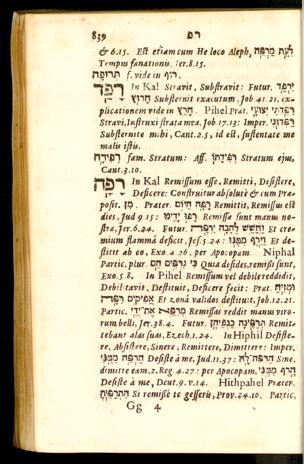 839 רפ
& 6.15. Est etiam cum He loco Aleph, לעת מרפה
Tempus sanationis. Jer. 8.15.
תרופה f. vide in רוף.
רפד In Kal Stravit, Substravit: Futur. ירפד
Substernit exacutum Job 41.21. ex-
plicationem vide in חרוץ. Pihel Præt. רפדתי יצועי
Stravi, Instruxi strata mea, Job 17.13: Imper.
Substernite mihi, Cant. 2.5, id est, sustentate me
malis istis.
רפידה fœm. Stratum: Aff. רפידתו Stratum ejus,
Cant. 3.10.
רפה In Kal Remissum esse, Remitti, Desistere,
Deficere: Construitur absolute & cum Præ-
posit. מן. Præter. רפה היום Remittit, Remissus est
dies, Jud 19.15: רפו ידינו Remissæ sunt manus no-
stræ, Jer. 6.24. Futur. Et cre-
mium flamma deficit, Jes. 5.24: וירף ממנו Et de-
stitit ab eo, Exo. 4.26. per Apocopam Niphal
Partic. plur. כי נרפים הם Quia desides, remissi sunt,
Exo. 5.8. In Pihel Remissum vel debile reddidit,
Debilitavit, Destituit, Deficere fecit: Præt.
Et zonâ validos destituit, Job. 12.21.
Partic. מרפא את ידי Remissas reddit manus viro-
rum belli, Jer. 38.4. Futur. תרפינה כנפיהן Remit-
tebant alas suas, Ezech. 1.24. In Hiphil Desiste-
re, Absistere, Sinere, Remittere, Dimittere: Imper.
הרפה ממני Desiste à me, Jud. 11.37: הרפה לה Sine,
dimitte eam, 2. Reg. 4.27: per Apocopam. הרף ממני
Desiste à me, Deut. 9. v. 14. Hithpahel Præter.
התרפית Si remissè te gesseris, Prov. 24.10. Partic.
Gg 4